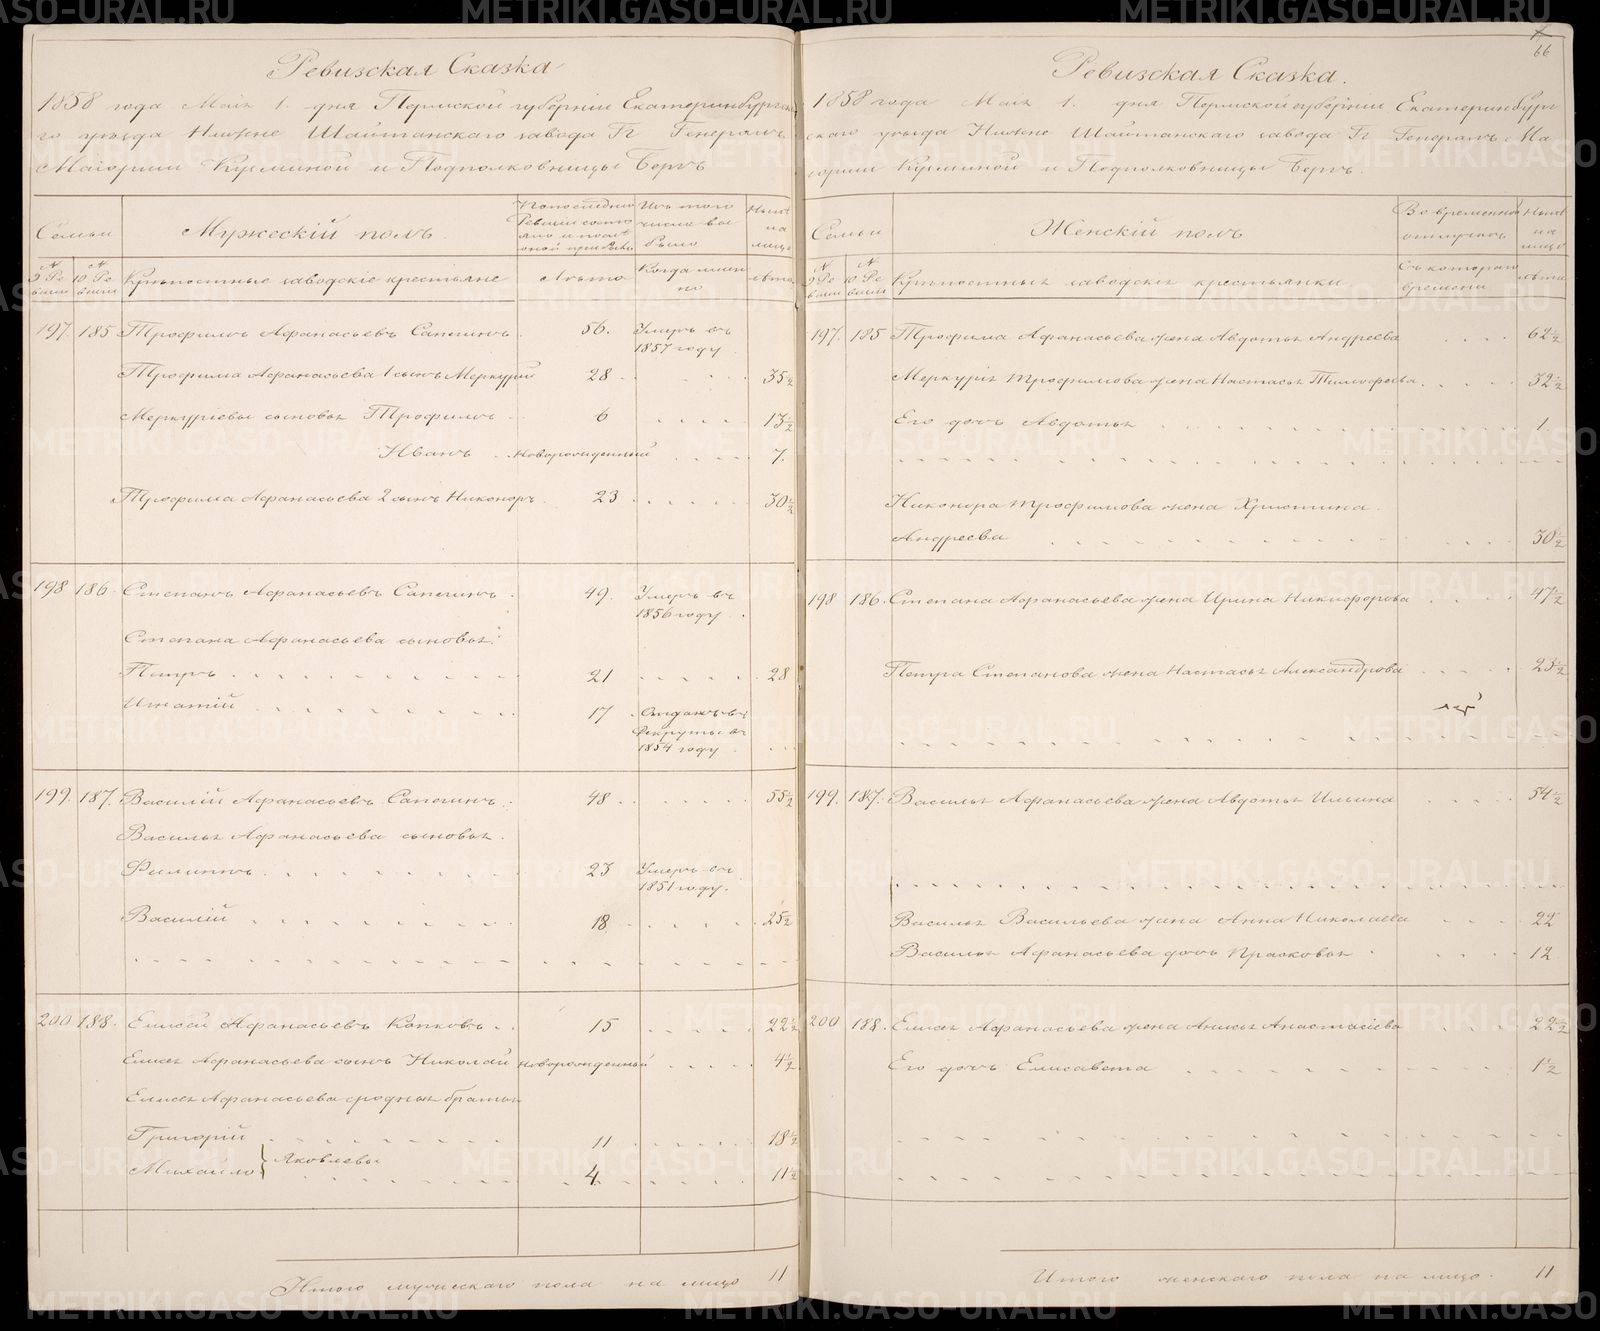 Ревизская Сказка
1858 года Маія 1. дня Пермской губерніи Екатеринбургска
го уѣзда Нижне Шайтанскаго завода Гг Генералъ
Маіорши Кузминой и Подполковницы Бергъ
Семьи
Мужескій полъ.
По последней Ревизіи состояло и после оной прибыло
Изъ того числа выбыло
Нынѣ на лицо
№ 9 Ревизіи
№ 10 Ревизіи
Крѣпостные заводскіе крестьяне
Лѣта
Когда именно
Лѣта
197. 185 Трофимъ Афанасьевъ Сапегинъ. 56. Умеръ въ
1857 году
Трофима Афанасьева 1 сынъ Меркурій 28 35½
Меркуріевы сыновья Трофимъ 6 13½
Иванъ новорожденный 7.
Трофима Афанасьева 2 сынъ Никоноръ 23 30½
198 186. Степанъ Афанасьевъ Сапегинъ. 49. Умеръ въ
1856 году.
Степана Афанасьева сыновья:
Петръ 21 28
Игнатій 17 Отданъ въ
рекруты въ
1854 году
199. 187. Василій Афанасьевъ Сапегинъ. 48 55½
Василья Афанасьева сыновья.
Филиппъ 23 Умеръ въ
1851 году.
Василій 18 25½
200 188. Елисей Афанасьевъ Копковъ. 15 22½
Елисея Афанасьева сынъ Николай новорожденный 4½
Елисея Афанасьева сродныя братья
Григорій 11 18½
Михайло } Яковлевы 4 11½
Итого мужескаго пола на лицо 11
66
Ревизская Сказка.
1858 года Маія 1. дня Пермской губерніи Екатеринбург
скаго уѣзда Нижне Шайтанскаго завода Гг Генералъ Ма
іорши Кузминой и Подполковницы Бергъ.
Семьи
Женскій полъ
Во временной отлучкѣ
Нынѣ на лицо
№ 9 Ревизіи
№ 10 Ревизіи
Крѣпостныя заводскія крестьянки
Съ котораго времени
Лѣта
197. 185 Трофима Афанасьева жена Авдотья Андреева 62½
Меркурія Трофимова жена Настасья Тимофеева 32½
Его дочь Авдотья 1
Никонора Трофимова жена Христина
Андреева 30½
198 186. Степана Афанасьева жена Ирина Никифорова 47½
Петра Степанова жена Настасья Александрова 25½
199. 187. Василья Афанасьева жена Авдотья Ильина 54½
Василья Васильева жена Анна Николаева 22
Василья Афанасьева дочь Прасковья 12
200 188. Елисея Афанасьева жена Анисья Анастасіева 22½
Его дочь Елисавета 1½
Итого женскаго пола на лицо. 11
METRIKI.GASO-URAL.RU